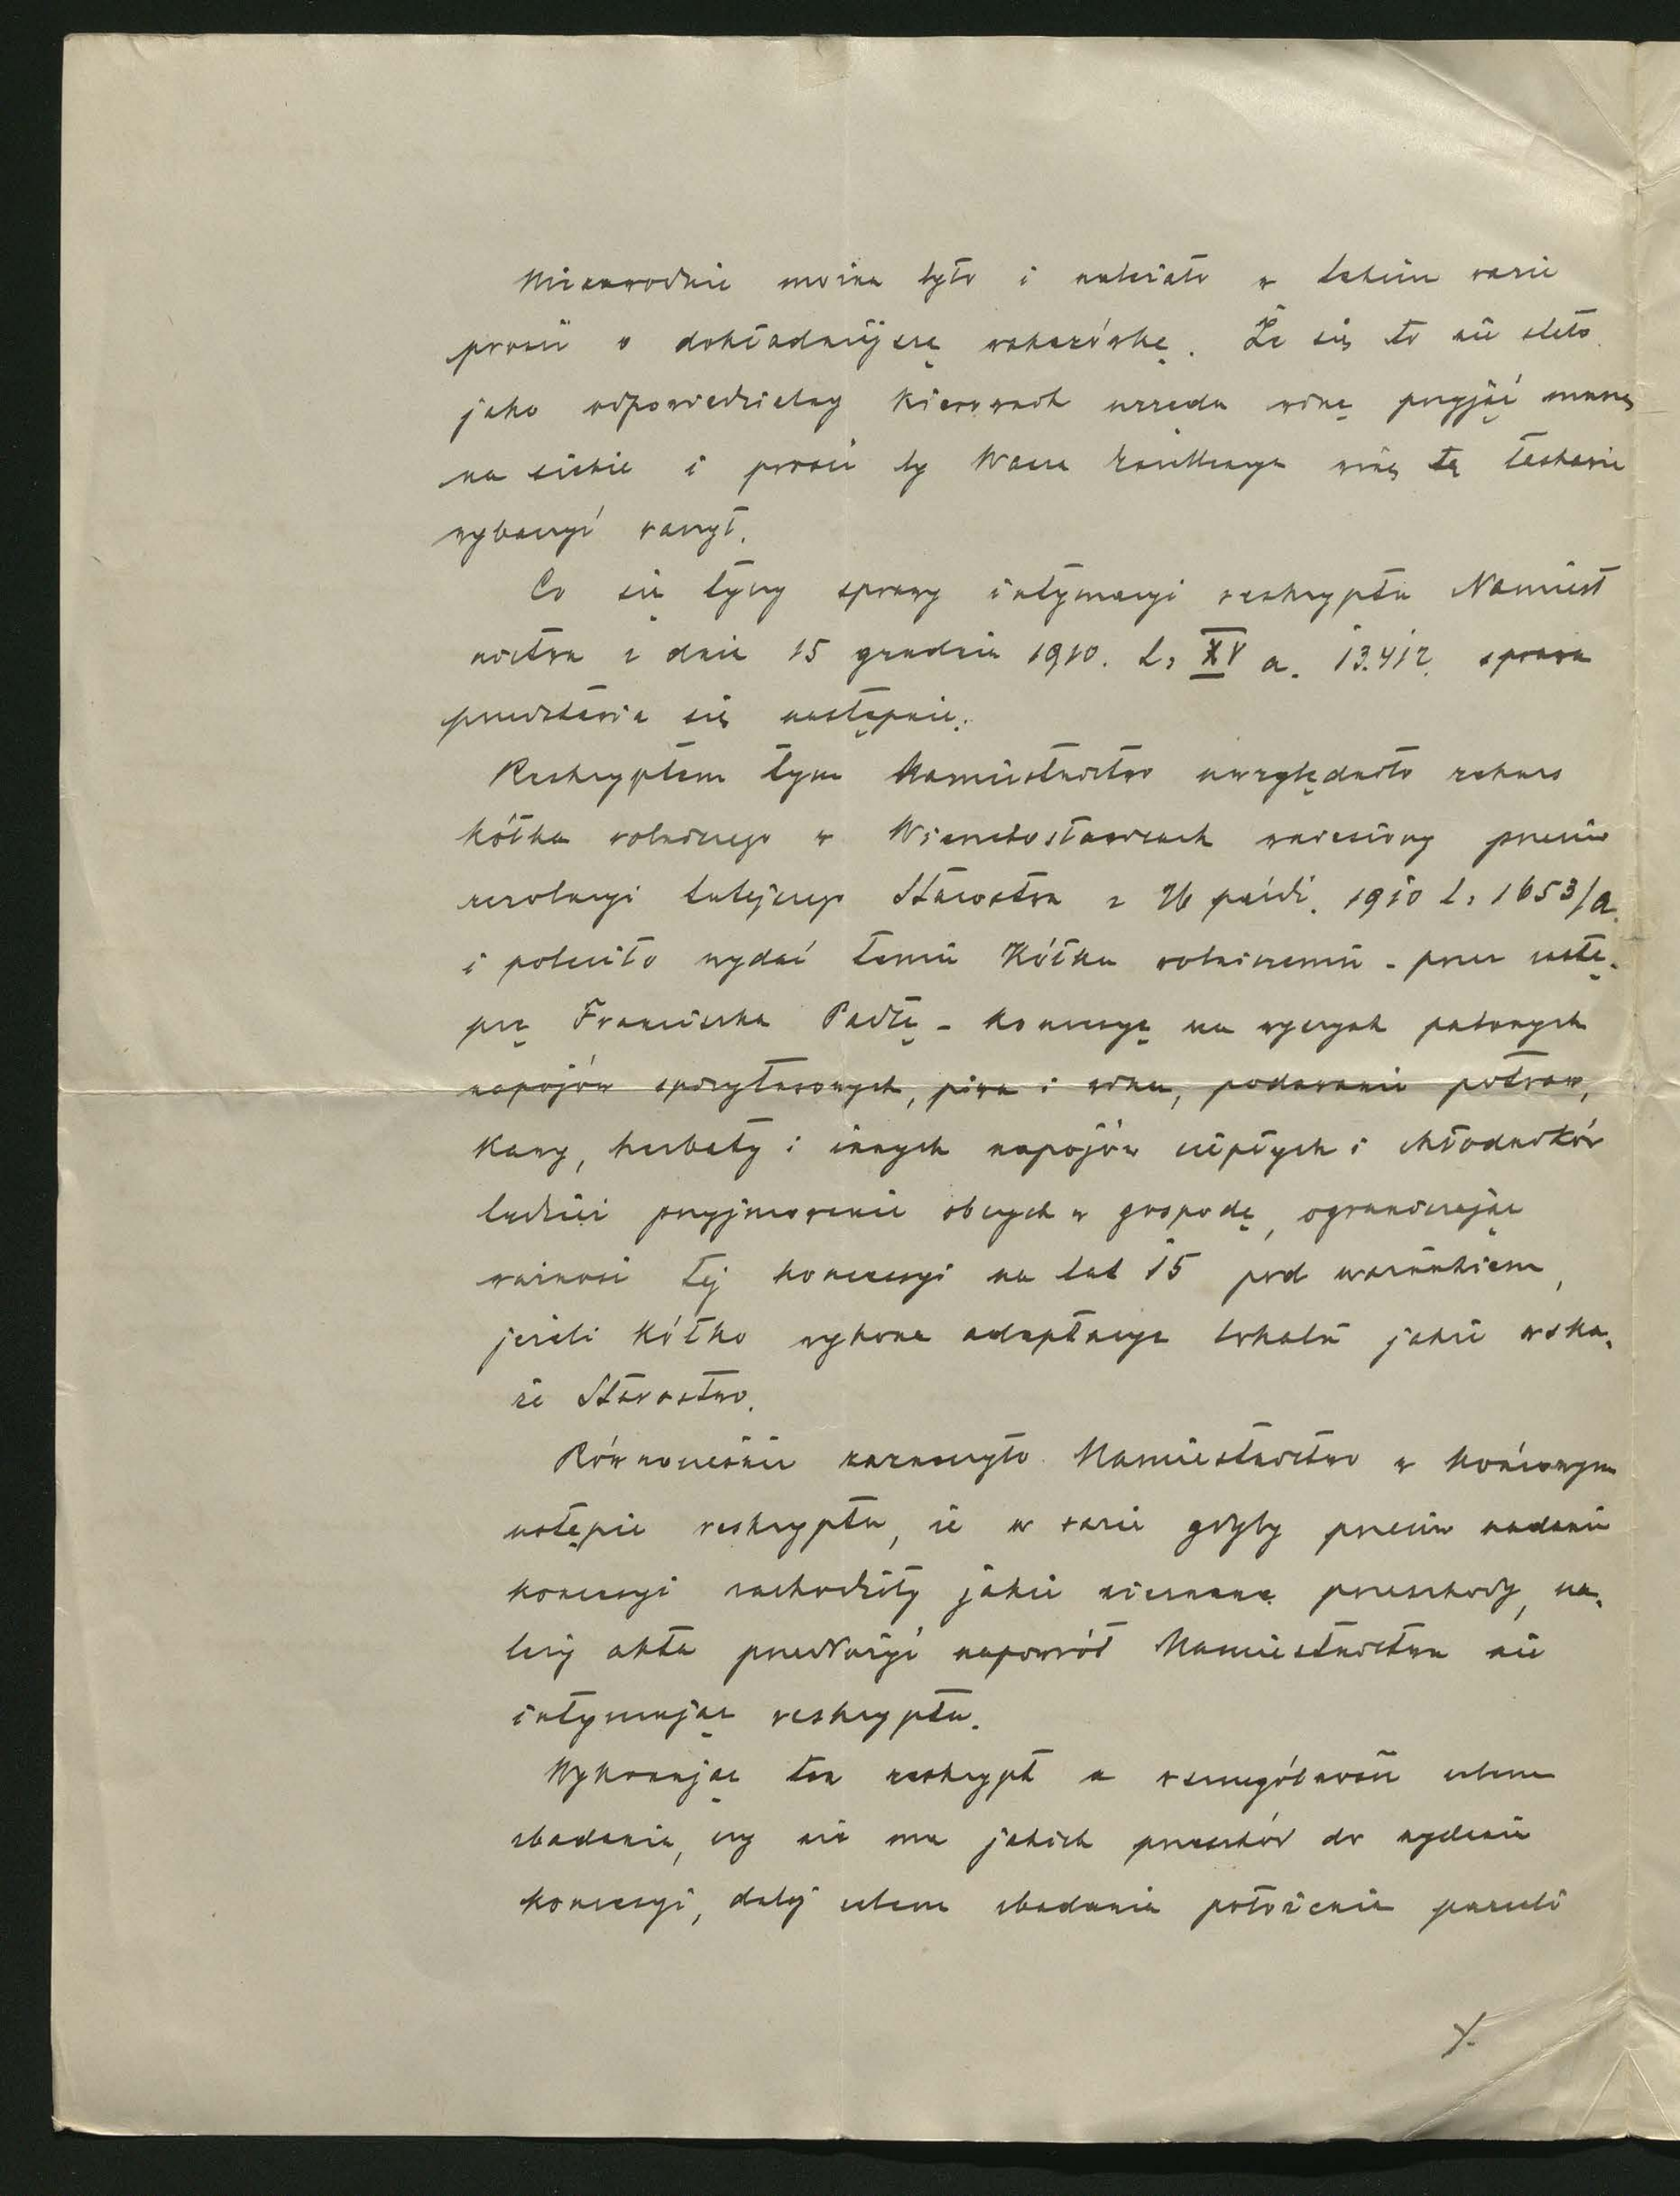 Niezawodnie można było i należało w takim razie
prosić o dokładniejszą wskazówkę. Że się to nie stało
jako odpowiedzialny kierownik urzędu winę przyjąć muszę
na siebie i prosić by Wasza Excellencya winę tę łaskawie
wybaczyć raczył.
Co się tyczy sprawy intymacyi reskryptu Namiest
nictwa z dnia 15 grudnia 1910. L: XV a. 13.412. sprawa
przedstawia się następnie:
Reskryptem tym Namiestnictwo uwzględniło rekurs
Kółka rolniczego w Wierzchosławicach wniesiony przeciw
rezolucyi tutejszego Starostwa z 26 paźdź. 1910 L: 1653/a.
i poleciło wydać temu Kółku rolniczemu - przez zastę-
pcę Franciszka Padłę - koncesyę na wyszynk palonych
napojów spirytusowych, piwa i wina, podawanie potraw,
kawy, herbaty i innych napojów ciepłych i chłodników
tudzież przyjmowanie obcych w gospodę, ograniczając
ważność tej koncesyi na lat 15 pod warunkiem,
jeżeli Kółko wykona adaptacye lokalu jakie wska-
że Starostwo.
Równocześnie zaznaczyło Namiestnictwo w końcowym
ustępie reskryptu, że w razie gdyby przeciw nadaniu
koncesyi zachodziły jakie nieznane przeszkody, na-
leży akta przedłożyć napowrót Namiestnictwu nie
intymując reskryptu.
Wykonując ten reskrypt a w szczególności celem
zbadania, czy nie ma jakich przeszkód do wydania
koncesyi, dalej celem zbadania położenia parceli
./.